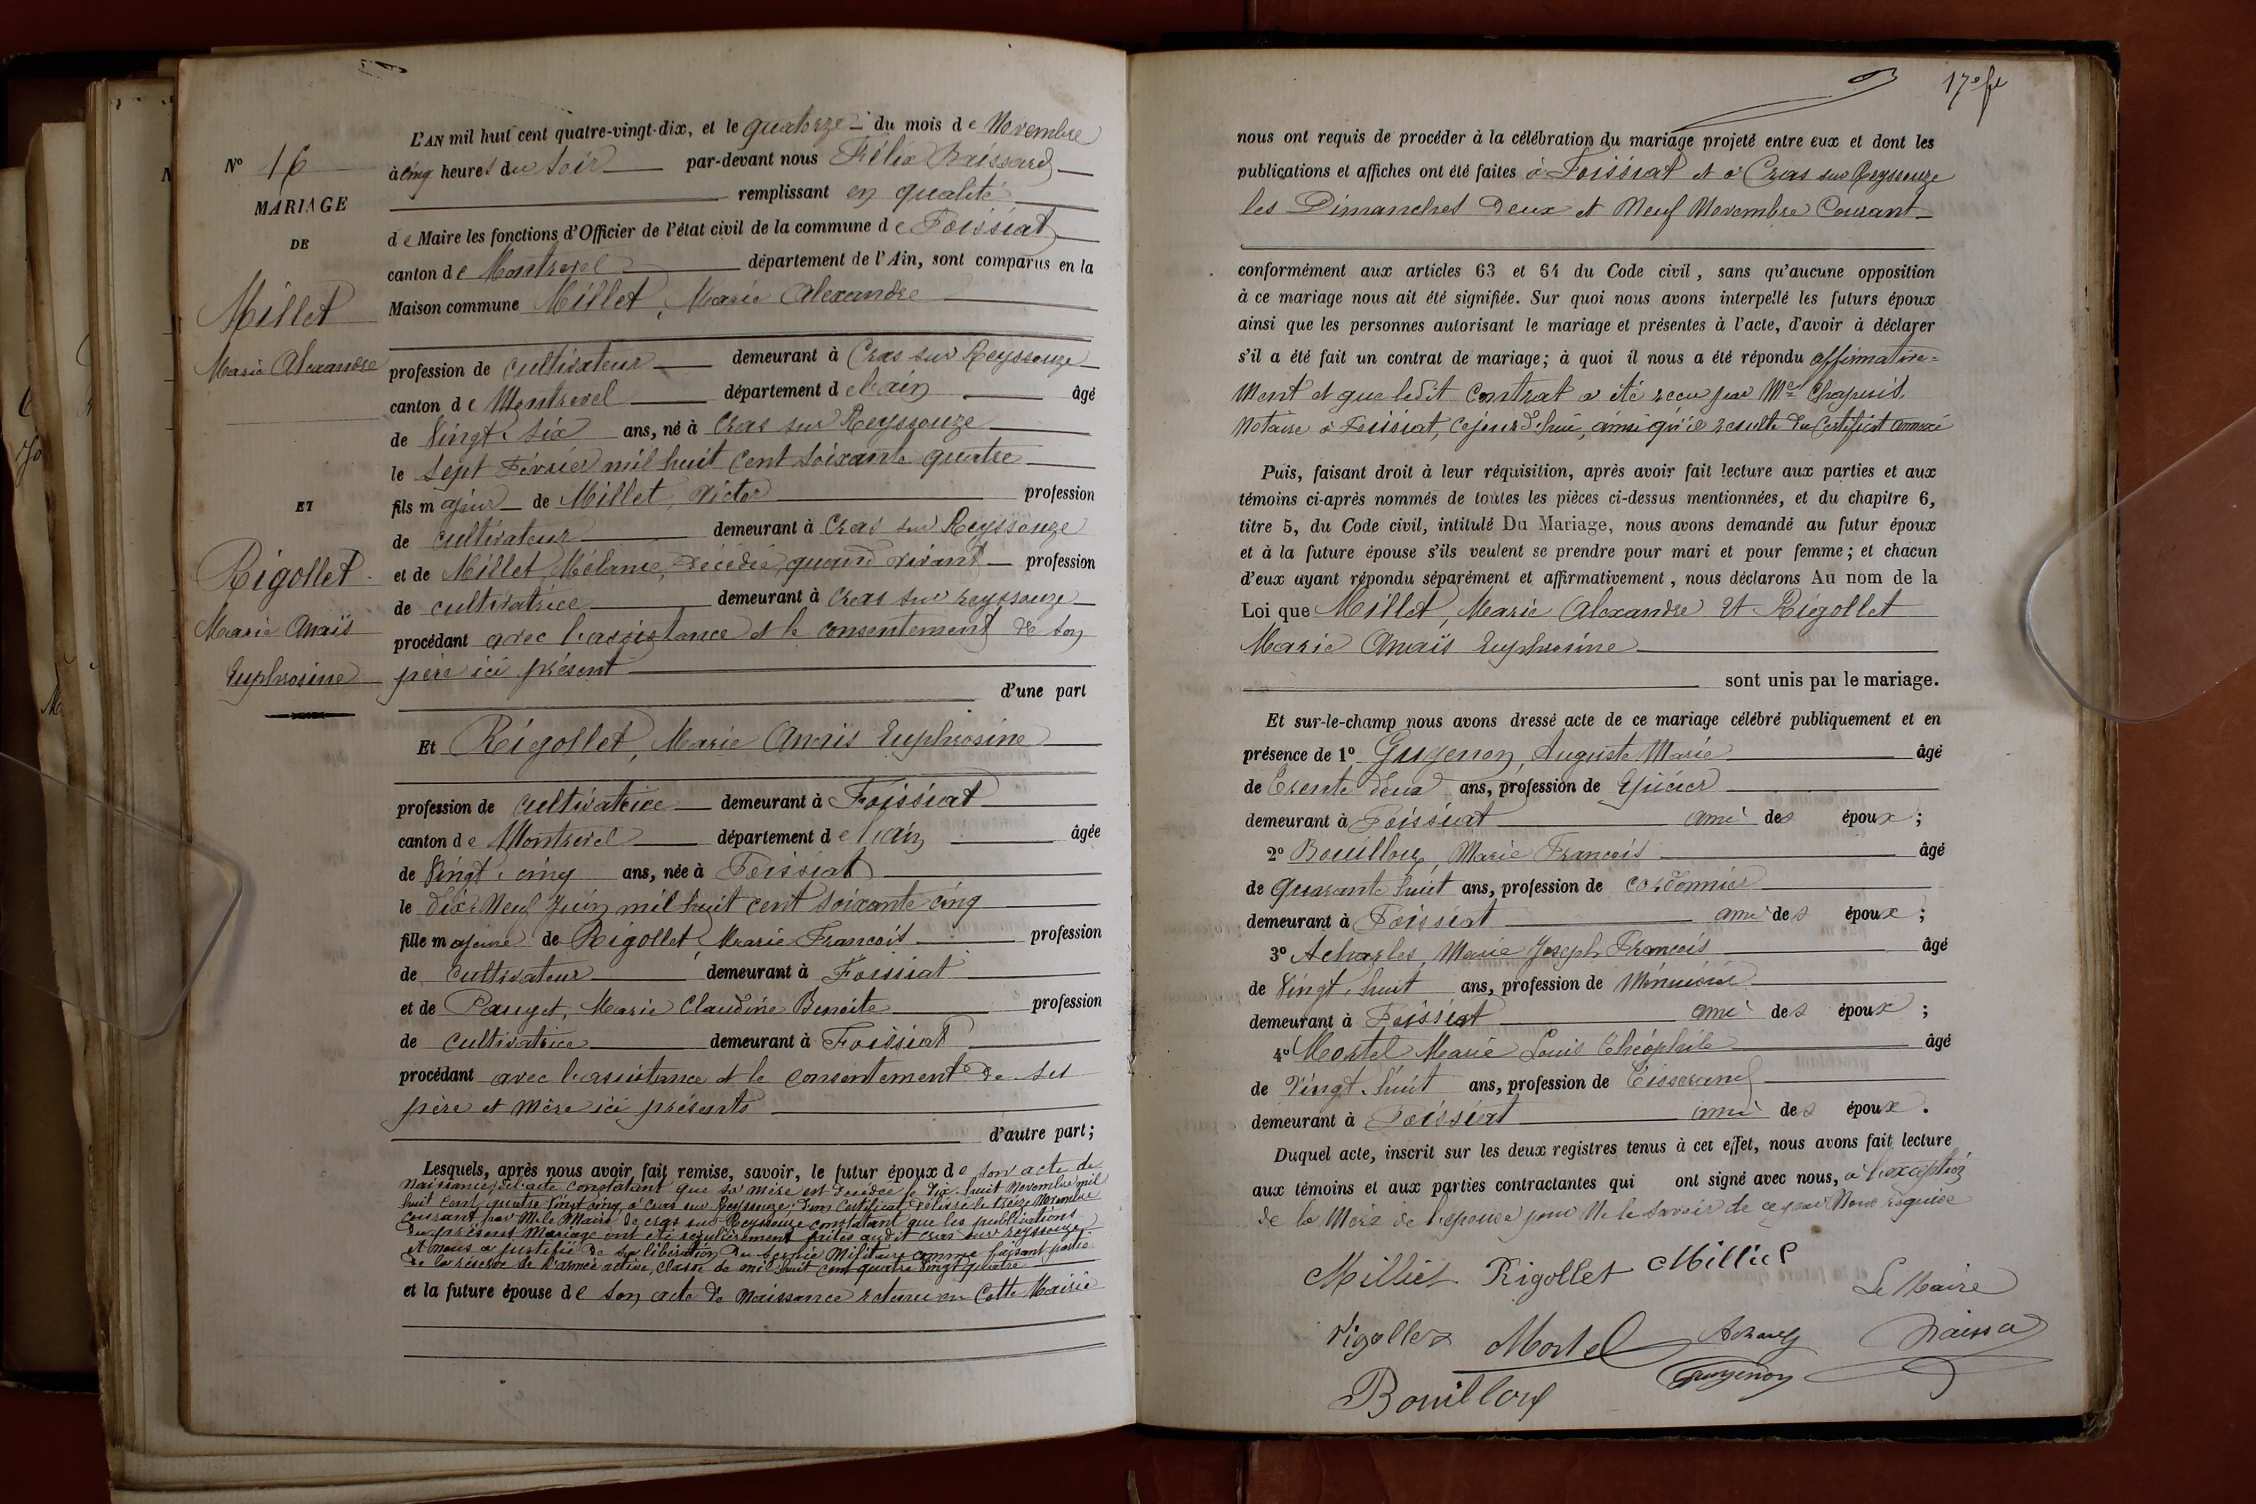 N° 16
MARIAGE
DE
Millet
Marie Alexandre
ET
Rigollet
Marie Anaïs
Euphrosine
L'AN mil huit cent quatre-vingt-dix, et le quatorze du mois de Novembre
à cinq heures du soir par-devant nous Félix
remplissant en qualité
de Maire les fonctions d'Officier de l'état civil de la commune de Foissiat
canton de Montrevel département de l'Ain, sont comparus en la
Maison commune Millet, Marie Alexandre
profession de cultivateur demeurant à Cras sur Reyssouze
canton de Montrevel département de l'ain âgé
de Vingt-six ans, né à Cras sur Reyssouze
le sept Février mil huit cent soixante quatre
fils majeur de Millet, Victor profession
de cultivateur demeurant à Cras sur Reyssouze
et de Millet, Mélanie, décédée, quand vivant profession
de cultivatrice demeurant à Cras sur reyssouze
procédant avec l'assistance et le consentement de son
père ici présent
d'une part
Et Rigollet, Marie Anaïs Euphrosine
profession de cultivatrice demeurant à Foissiat
canton de Montrevel département de l'ain âgée
de Vingt-cinq ans, née à Foissiat
le dix-Neuf Juin mil huit cent soixante cinq
fille majeure de Rigollet, Marie François profession
de cultivateur demeurant à Foissiat
et de Pauget, Marie Claudine Benoite profession
de cultivatrice demeurant à Foissiat
procédant avec l'assistance et le consentement de ses
père et mère ici présents
d'autre part;
Lesquels, après nous avoir fait remise, savoir, le futur époux de son acte de
naissance, de l'acte constatant que sa mère est décédée le dix-huit Novembre mil
huit cent quatre vingt cinq à Cras sur Reyssouze; d'un certificat délivré le treize Novembre
courant par M. le Maire de cras sur Reyssouze constatant que les publications
du présent Mariage ont été régulièrement faites audit cras sur reyssouze
et nous a justifié de sa libération du service Militaire comme faisant partie
de la réserve de l'armée active, classe de mil huit cent quatre vingt quatre
et la future épouse de son acte de Naissance retenu en Cette Mairie
17e ft
nous ont requis de procéder à la célébration du mariage projeté entre eux et dont les
publications et affiches ont été faites à Foissiat et à Cras sur Reyssouze
les Dimanches deux et Neuf Novembre Courant
conformément aux articles 63 et 64 du Code civil, sans qu'aucune opposition
à ce mariage nous ait été signifiée. Sur quoi nous avons interpellé les futurs époux
ainsi que les personnes autorisant le mariage et présentes à l'acte, d'avoir à déclarer
s'il a été fait un contrat de mariage; à quoi il nous a été répondu affirmative=
ment et que ledit contrat a été reçu par Me Chapuis
Notaire à Foissiat, cejourd'hui, ainsi qu'il résulte du Certificat annexé
Puis, faisant droit à leur réquisition, après avoir fait lecture aux parties et aux
témoins ci-après nommés de toutes les pièces ci-dessus mentionnées, et du chapitre 6,
titre 5, du Code civil, intitulé Du Mariage, nous avons demandé au futur époux
et à la future épouse s'ils veulent se prendre pour mari et pour femme; et chacun
d'eux ayant répondu séparément et affirmativement, nous déclarons Au nom de la
Loi que Millet, Marie Alexandre et Rigollet
Marie Anaïs Euphrosine
sont unis par le mariage.
Et sur-le-champ nous avons dressé acte de ce mariage célébré publiquement et en
présence de 1° Guyenon, Auguste Marie âgé
de trente deux ans, profession de épicier
demeurant à Foissiat ami des époux;
2° Bouilloux, Marie François âgé
de quarante huit ans, profession de cordonnier
demeurant à Foissiat ami des époux;
3° Acharles, Marie Joseph François âgé
de Vingt-huit ans, profession de Menuisier
demeurant à Foissiat ami des époux;
4° Mortel Marie Louis Théophile âgé
de Vingt-huit ans, profession de Tisserand
demeurant à Foissiat ami des époux.
Duquel acte, inscrit sur les deux registres tenus à cet effet, nous avons fait lecture
aux témoins et aux parties contractantes qui ont signé avec nous, à l'exception
de la Mère de l'épouse pour Ne le savoir de ce par Nous requise
Milliet Rigollet Milliet
Le Maire
Rigollet Mortel
Guyenon
Bouilloux